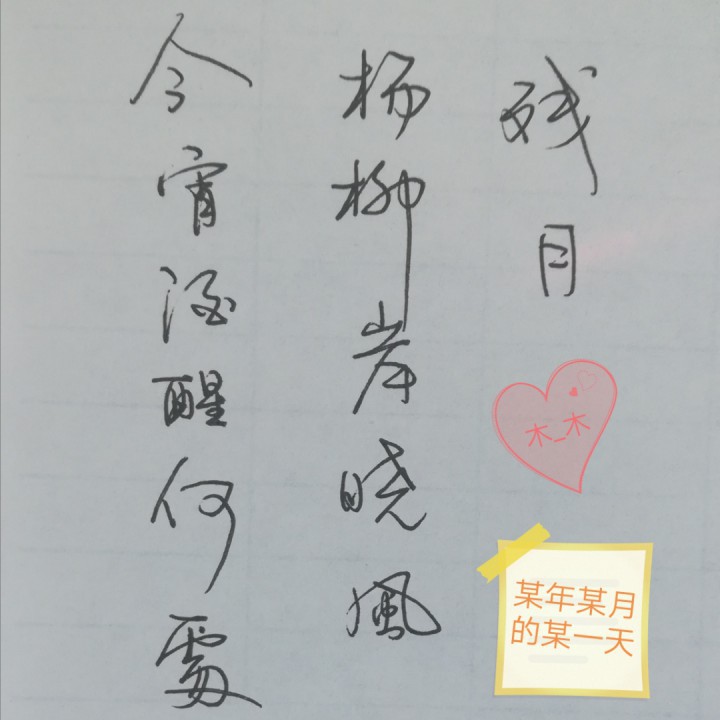 今宵酒醒何處
杨柳岸晓風
残月
木_木
某年某月
的某一天